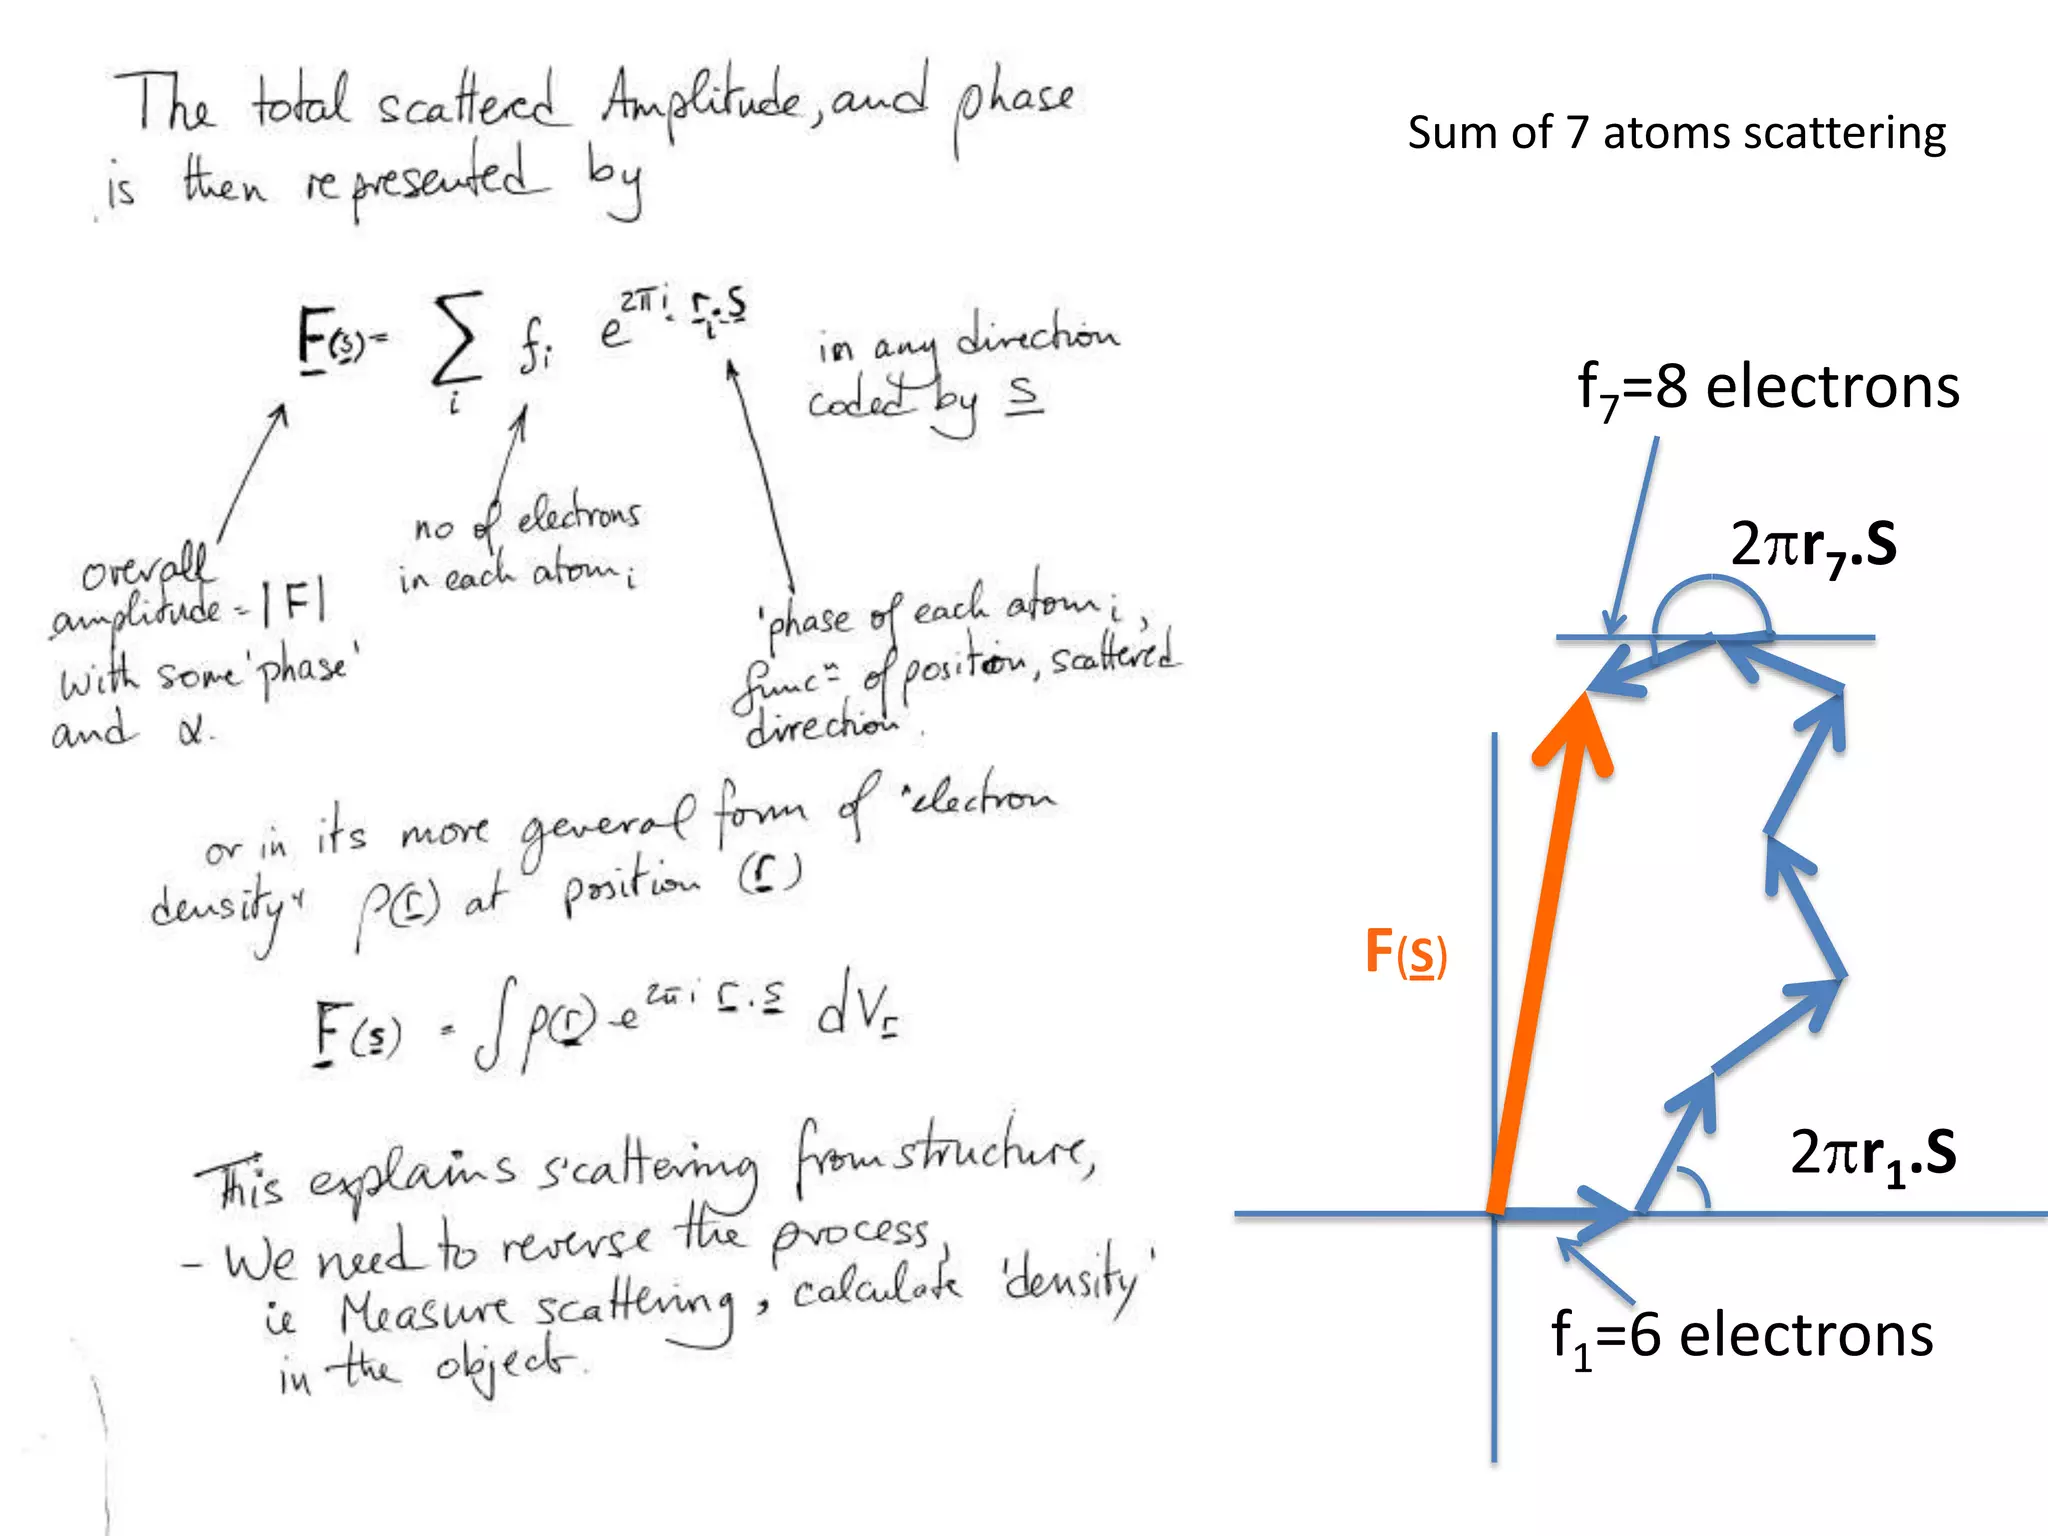 The total scattered Amplitude, and phase
is then represented by
F(s) = ∑ᵢ fᵢ e^2πi rᵢ.s
in any direction
coded by s
overall
amplitude = |F|
with some 'phase'
and α.
no of electrons
in each atom i
'phase of each atom i,
funcⁿ of position, scattered
direction.
or in its more general form of "electron
density" ρ(r) at position (r)
F(s) = ∫ρ(r) e^2πi r.s dVr
This explains scattering from structure,
- We need to reverse the process,
ie Measure scattering, calculate 'density'
in the object.
Sum of 7 atoms scattering
f₇=8 electrons
2πr₇.S
F(s)
2πr₁.S
f₁=6 electrons